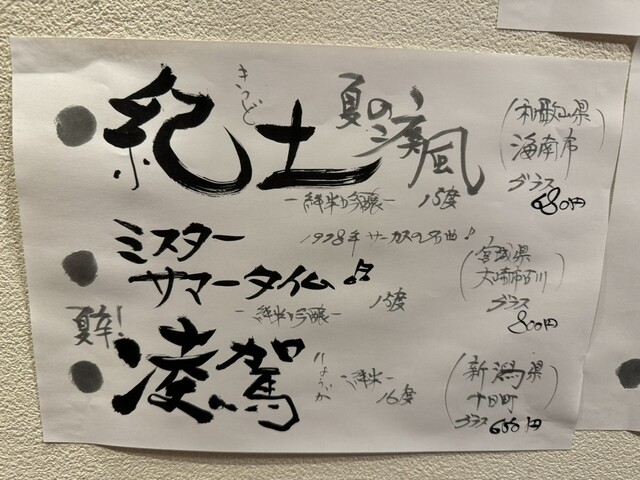 きっど
紀土 夏の疾風
(和歌山県
海南市)
グラス
680円
-純米吟醸- 15度
ミスター
サマータイム♬
1978年 サーカスの名曲♪
-純米吟醸- 15度
(宮城県
大崎市古川)
グラス
800円
夏(酒)!
凌駕
りょうが
純米- 16度
(新潟県
十日町)
グラス 650円